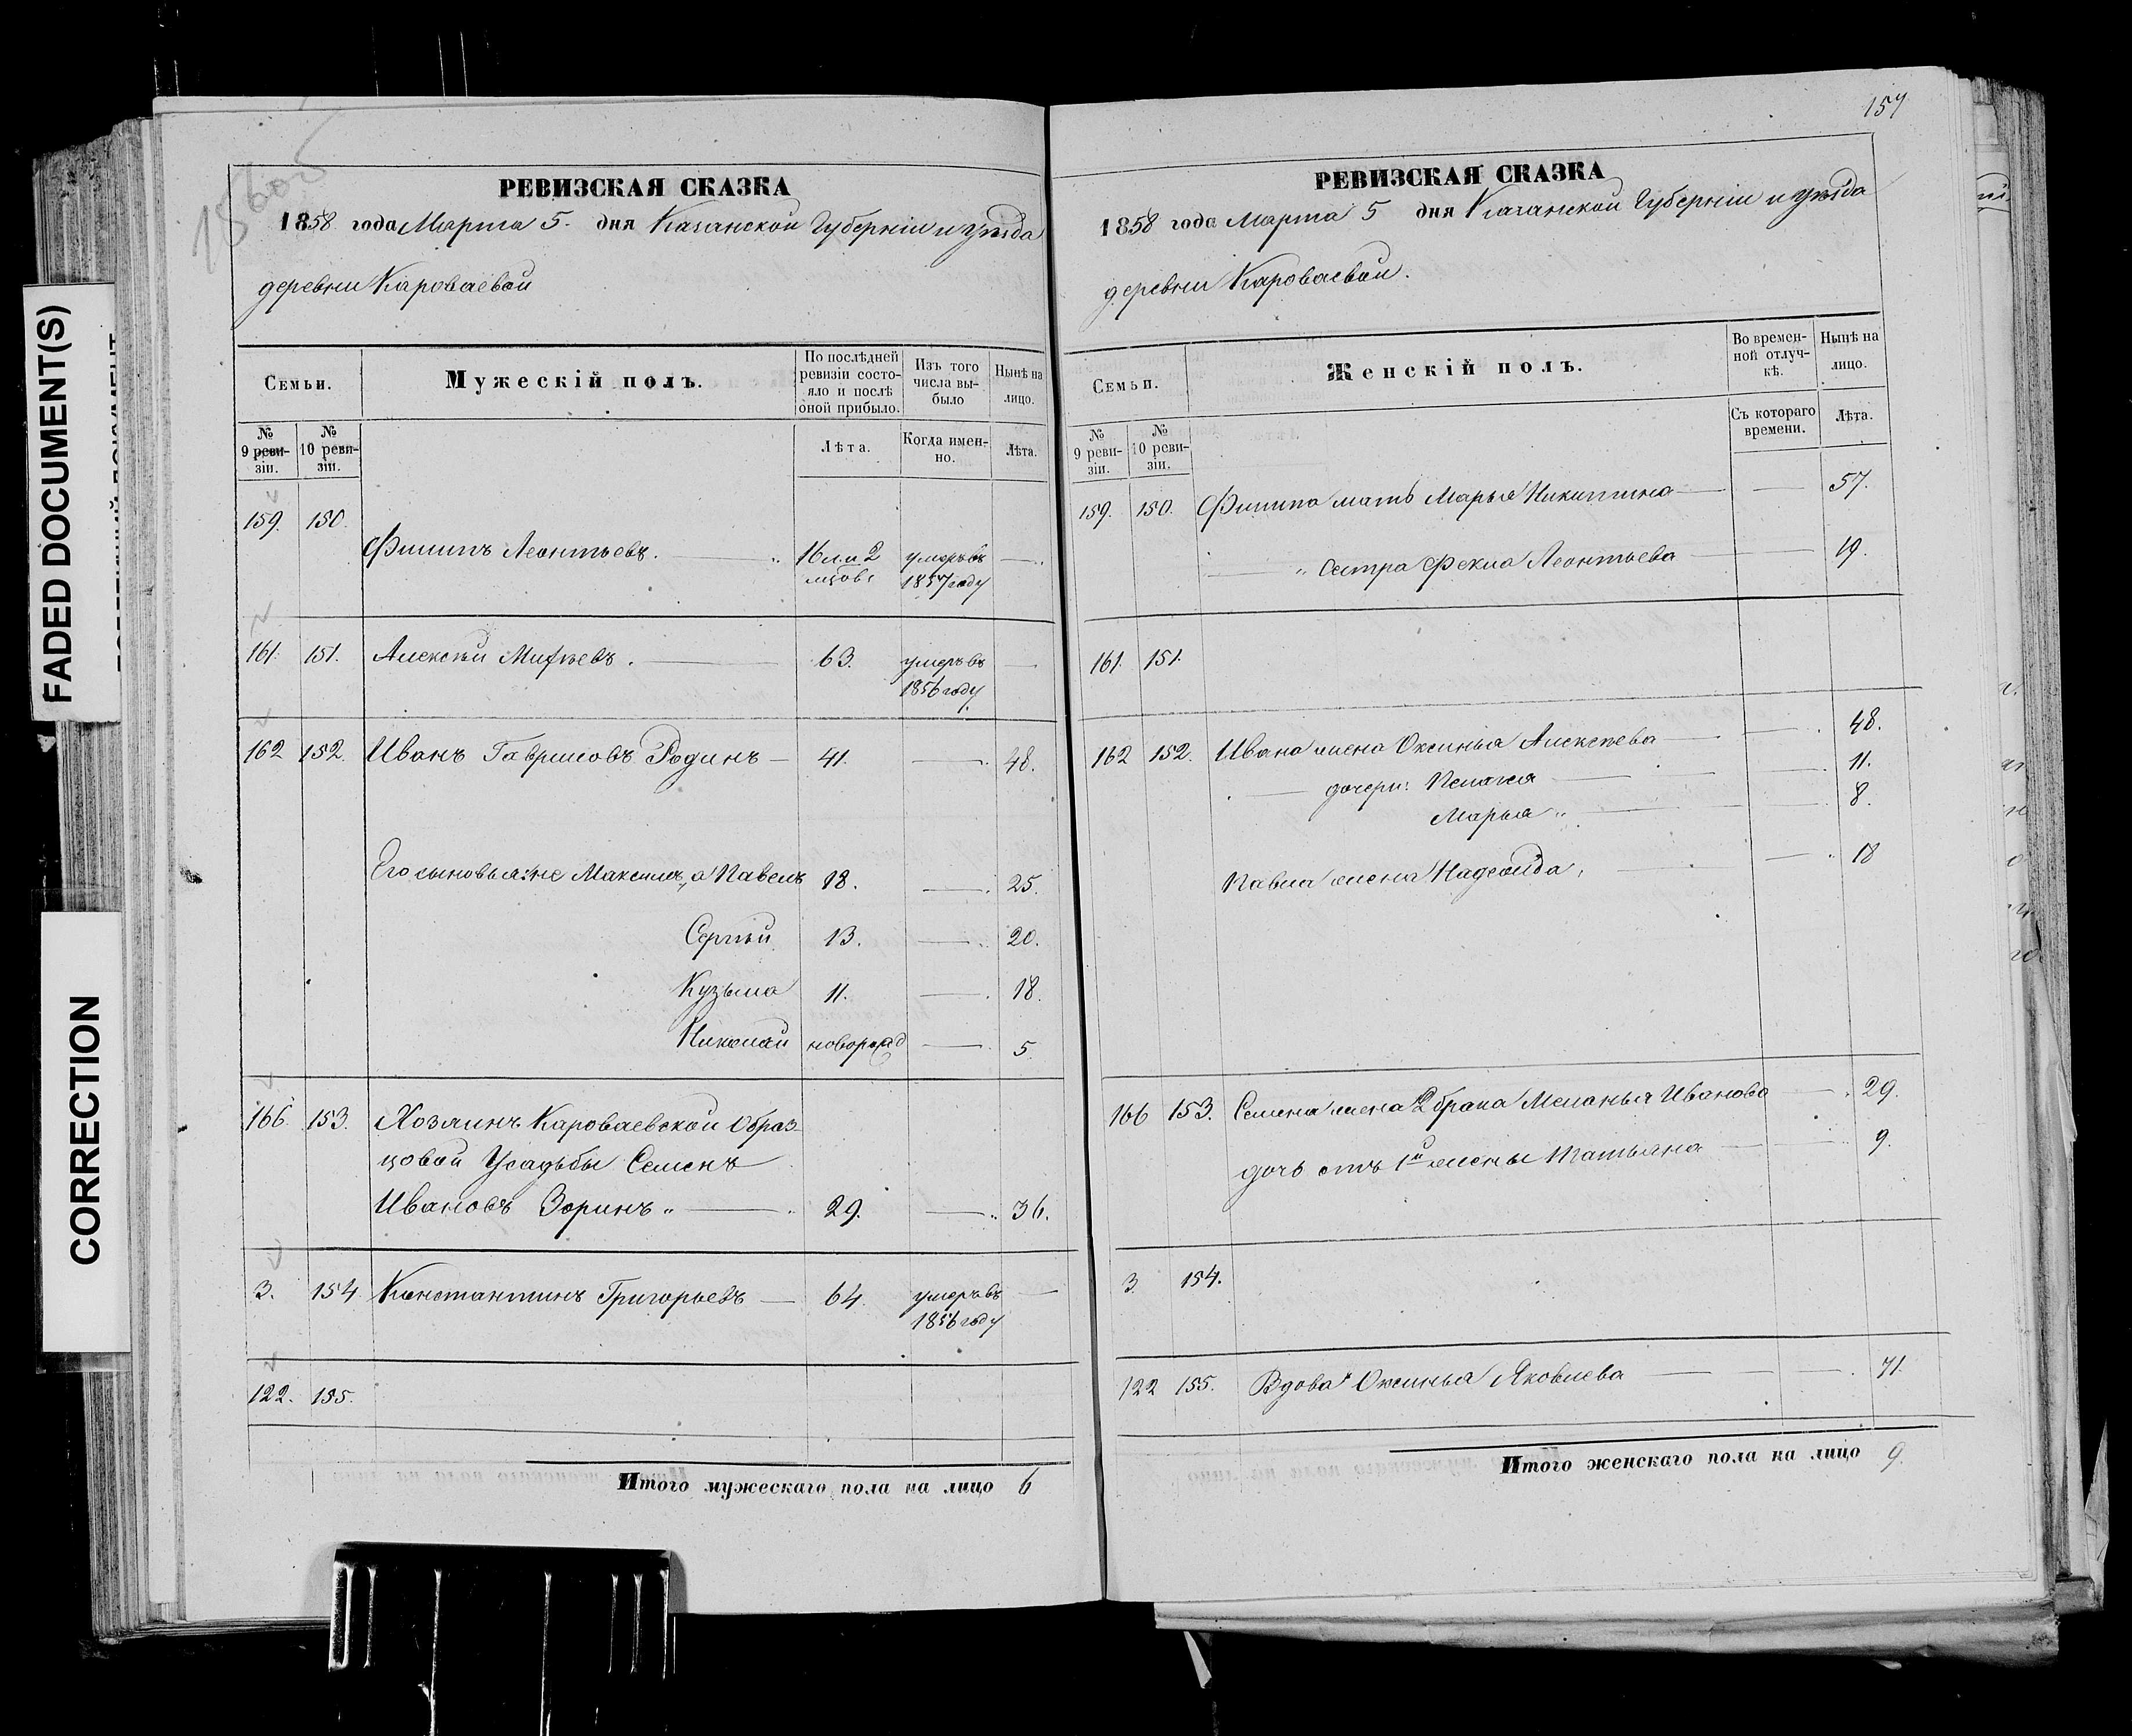 FADED DOCUMENT(S)
CORRECTION
156 об
РЕВИЗСКАЯ СКАЗКА
1858 года Марта 5. дня Казанской Губерніи и уѣзда
деревни Кароваевой
Семьи.
Мужескій полъ.
По послѣдней ревизіи состояло и послѣ оной прибыло.
Изъ того числа выбыло
Нынѣ на лицо.
№ 9 ревизіи.
№ 10 ревизіи.
Лѣта.
Когда именно.
Лѣта.
159. 150. Филипъ Леонтьевъ. 16 л. и 2 умеръ въ
мцовъ 1857 году
161. 151. Алексѣй Михѣевъ. 63. умеръ въ
1856 году
162 152. Иванъ Гавриловъ Родинъ 41. 48.
Его сыновья: не Максимъ, а Павелъ 18. 25.
Сергѣй 13. 20.
Кузьма 11. 18.
Николай новорожд 5.
166. 153. Хозяинъ Кароваевской Образ-
цовой Усадьбы Семенъ
Ивановъ Зоринъ 29. 36.
3. 154. Константинъ Григорьевъ 64. умеръ въ
1856 году
122. 155.
Итого мужескаго пола на лицо 6
157
РЕВИЗСКАЯ СКАЗКА
1858 года Марта 5 дня Казанской Губерніи и уѣзда
деревни Кароваевой.
Семьи.
Женскій полъ.
Во временной отлучкѣ.
Нынѣ на лицо.
№ 9 ревизіи.
№ 10 ревизіи.
Съ котораго времени.
Лѣта.
159. 150. Филипа мать Марья Никитина 57.
сестра Фекла Леонтьева 19.
161. 151.
162 152. Ивана жена Оксинья Алексѣева 48.
дочери: Пелагея 11.
Марья 8.
Павла жена Надежда 18
166 153. Семена жена 2 брака Меланья Иванова 29.
дочь отъ 1й жены Татьяна 9.
3. 154.
122 155. Вдова Оксинья Яковлева 71.
Итого женскаго пола на лицо 9.